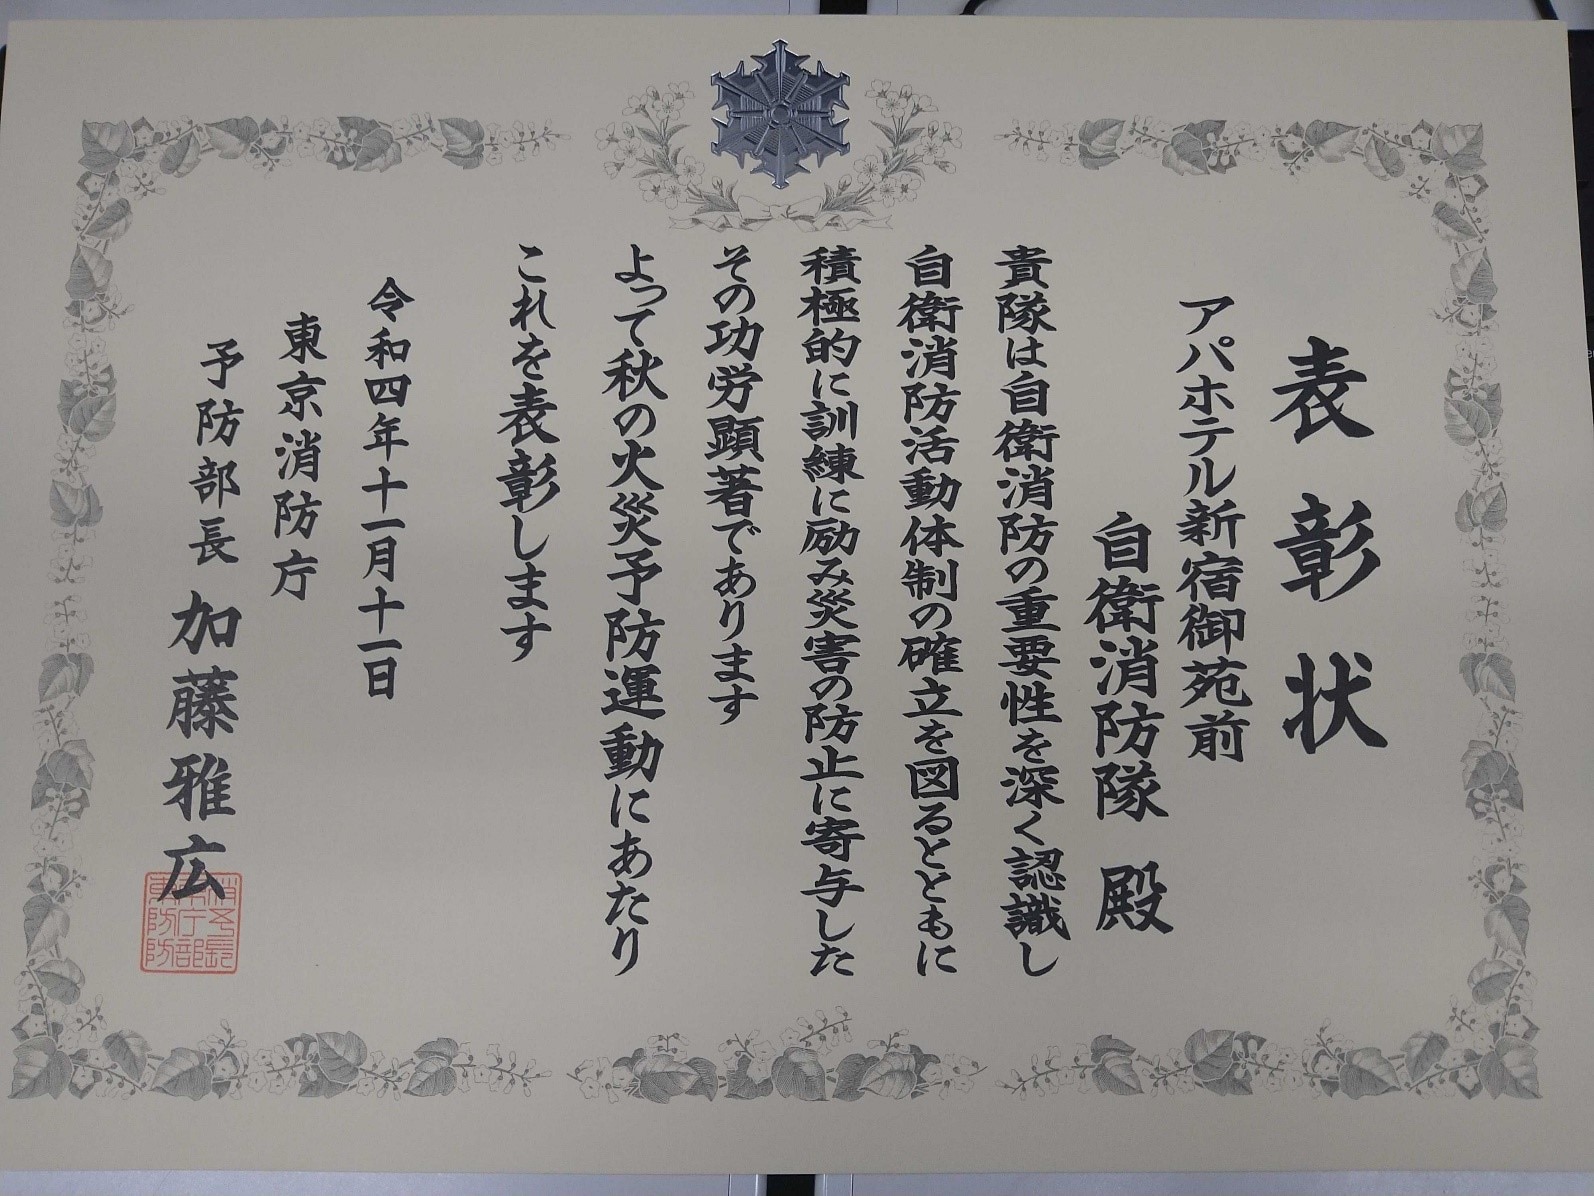 表彰状
アパホテル新宿御苑前
自衛消防隊 殿
貴隊は自衛消防の重要性を深く認識し
自衛消防活動体制の確立を図るとともに
積極的に訓練に励み災害の防止に寄与した
その功労顕著であります
よって秋の火災予防運動にあたり
これを表彰します
令和四年十一月十一日
東京消防庁
予防部長 加藤雅広